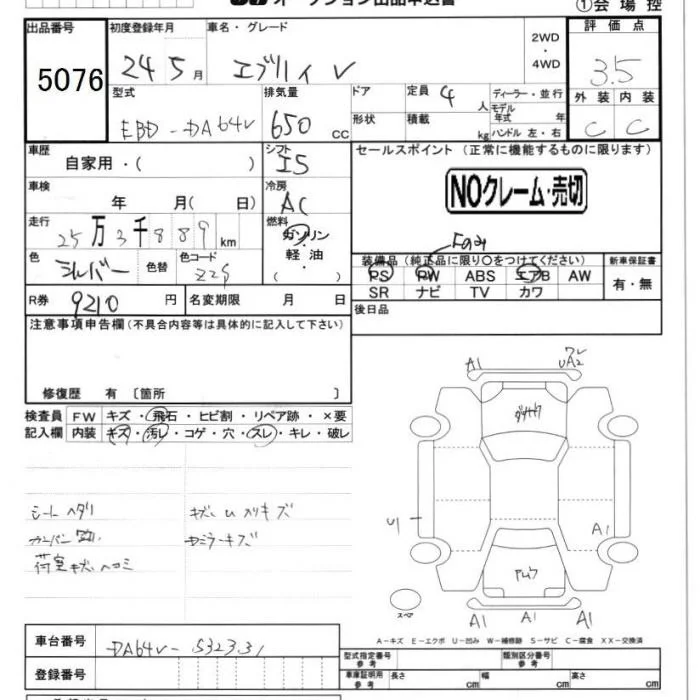 オークション出品申込書 ①会場控
出品番号 初度登録年月 車名・グレード 評価点
5076 24 5月 エブリィ V 2WD・4WD 3.5
型式 排気量 ドア 定員 4 人 ディーラー・並行 外装 内装
EBD-DA64V 650 cc 形状 積載 kg モデル年式 年 ハンドル 左・右 C C
車歴 自家用・( ) シフト I5 セールスポイント (正常に機能するものに限ります)
車検 年 月( 日) 冷房 AC NOクレーム・売切
走行 25万3千889km 燃料 ガソリン・軽油・( )
Fのみ
色 シルバー 色替 色コード Z2S 装備品 (純正品に限り○をつけてください) 新車保証書
PS PW ABS エアB AW 有・無
SR ナビ TV カワ
R券 9210 円 名変期限 月 日 後日品
注意事項申告欄 (不具合内容等は具体的に記入して下さい)
修復歴 有 〔箇所 〕
検査員 FW キズ・飛石・ヒビ割・リペア跡・×要
記入欄 内装 キズ・汚レ・コゲ・穴・スレ・キレ・破レ
シートヘタリ
荷室キズヘコミ
A1 UA2
U1 A1
スペア
A1 A1 A1
A-キズ E-エクボ U-凹み W-補修跡 S-サビ C-腐食 XX-交換済
車台番号 DA64V-532331
登録番号
型式指定番号 参考 類別区分番号 参考
車庫証明用 参考 長さ cm 幅 cm 高さ cm